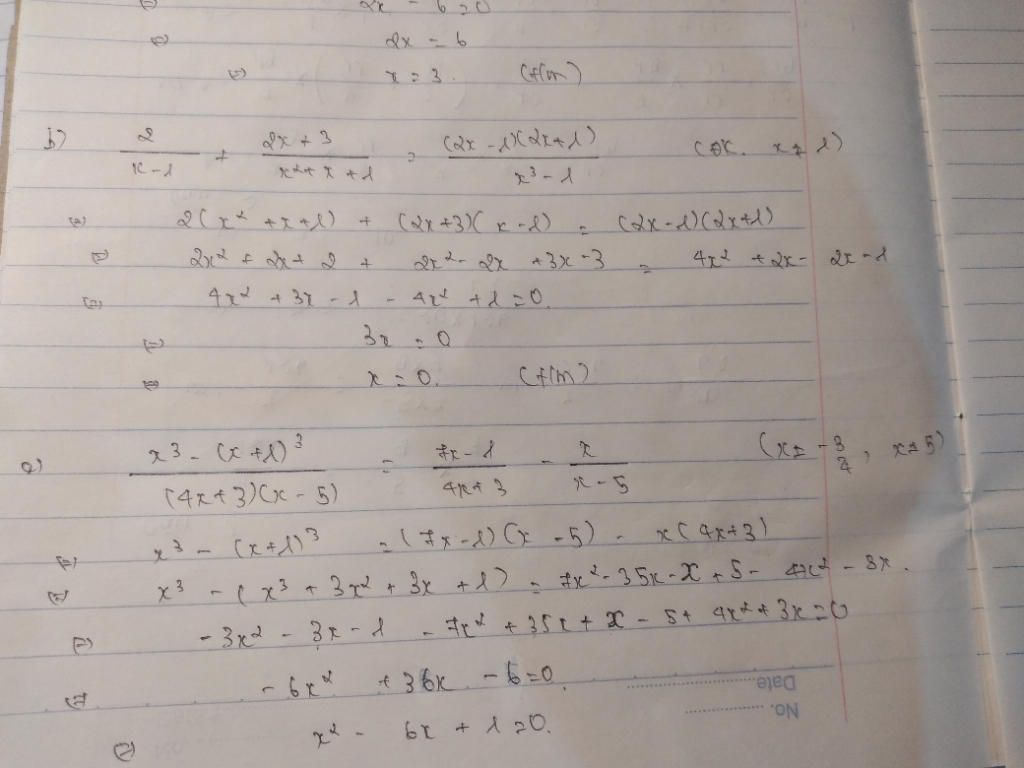 ⇔ 2x - 6 = 0
⇔ 2x = 6
⇔ x = 3. (t/m)
b) 2/(x-1) + (2x+3)/(x²+x+1) = (2x-1)(2x+1)/(x³-1) (ĐK. x ≠ 1)
⇔ 2(x²+x+1) + (2x+3)(x-1) = (2x-1)(2x+1)
⇔ 2x² + 2x + 2 + 2x² - 2x + 3x - 3 = 4x² + 2x - 2x - 1
⇔ 4x² + 3x - 1 - 4x² + 1 = 0.
⇔ 3x = 0
⇔ x = 0. (t/m)
c) (x³ - (x+1)³)/((4x+3)(x-5)) = (7x-1)/(4x+3) - x/(x-5) (x ≠ -3/4, x ≠ 5)
⇔ x³ - (x+1)³ = (7x-1)(x-5) - x(4x+3)
⇔ x³ - (x³ + 3x² + 3x + 1) = 7x² - 35x - x + 5 - 4x² - 3x.
⇔ -3x² - 3x - 1 - 7x² + 35x + x - 5 + 4x² + 3x = 0
⇔ -6x² + 36x - 6 = 0.
⇔ x² - 6x + 1 = 0.
Date
No.